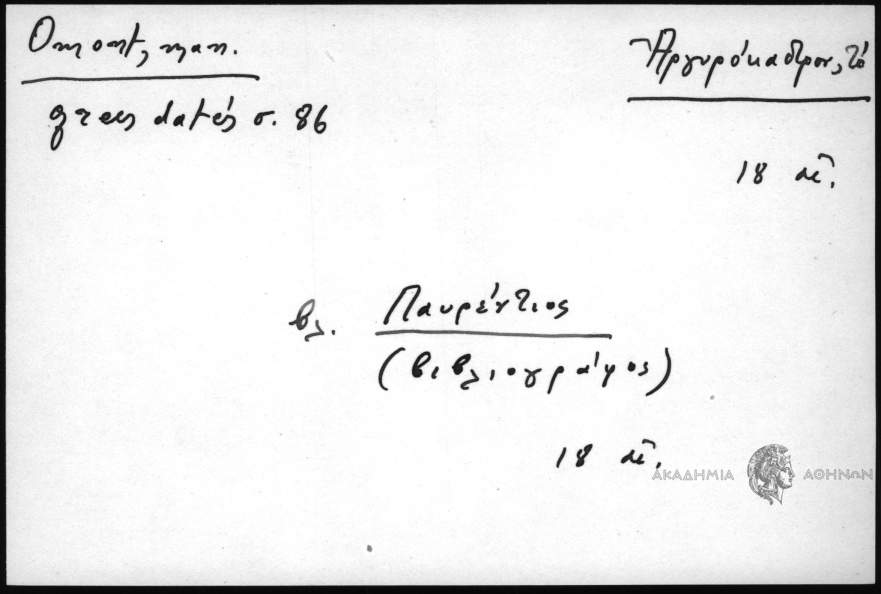 Omont, man.
grecs datés σ. 86
Ἀργυρόκαστρον, τό
18 αἰ.
βλ. Λαυρέντιος
(βιβλιογράφος)
18 αἰ.
ΑΚΑΔΗΜΙΑ ΑΘΗΝΩΝ